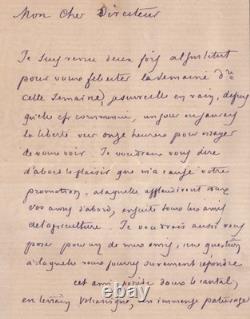 Mon Cher Directeur
Je suis venu deux fois à l'Institut
pour vous feliciter la semaine d
celle semaine, en vain, depuis
qu'elle est commencée,
la liberté vers onze heures pour essayer
de vous voir. Je voudrais vous dire
d'abord le plaisir que m'a causé votre
promotion, à laquelle applaudiront
vos amis d'abord, ensuite tous les amis
de l'agriculture. Je voudrais aussi vous
poser pour un de mes amis, une question
à laquelle vous pourrez surement répondre
cet ami possède dans le cantal,
en terrain volcanique, un immense paturage
ebay